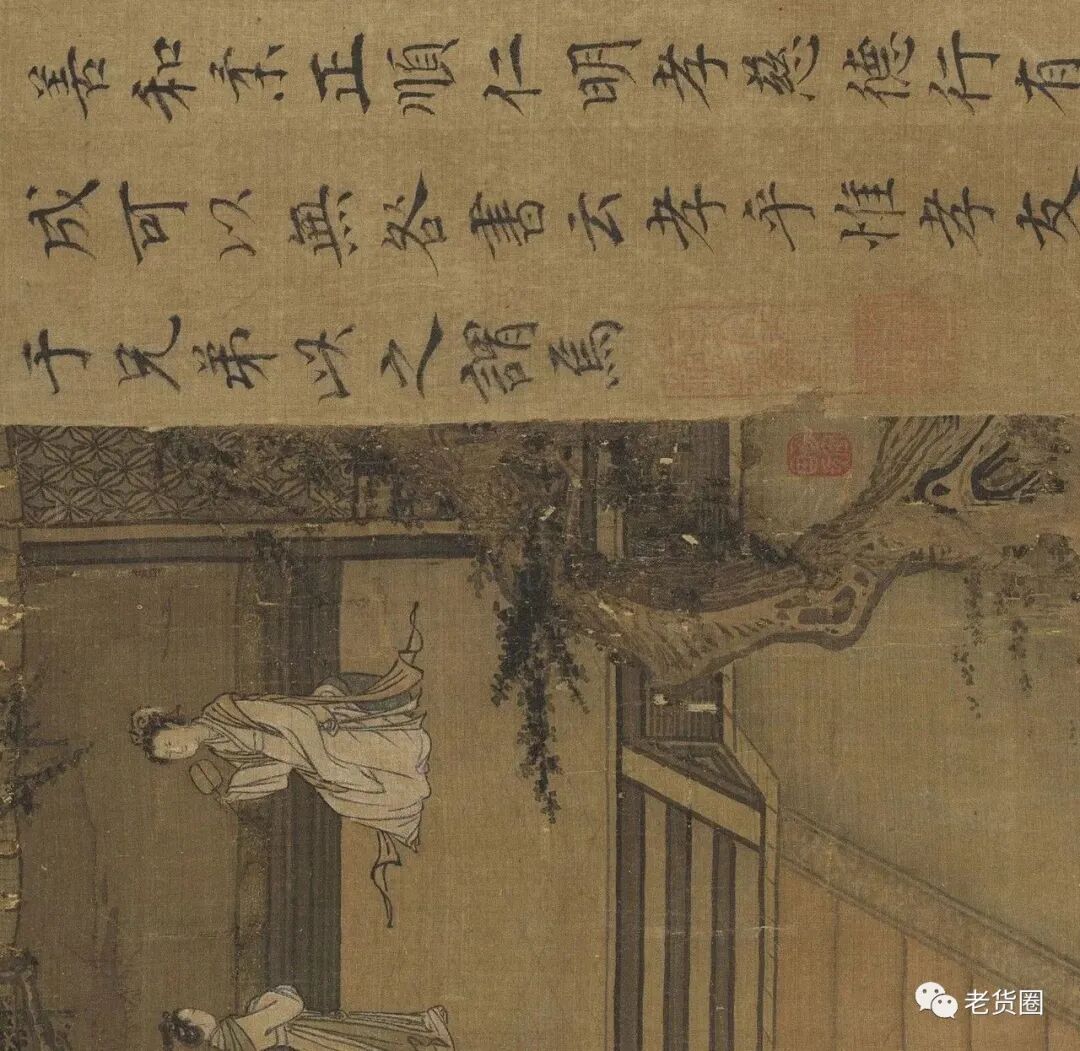 善和柔正順仁明孝慈德行有
成可以無咎書云孝乎惟孝友
于兄弟此之謂焉
老货圈